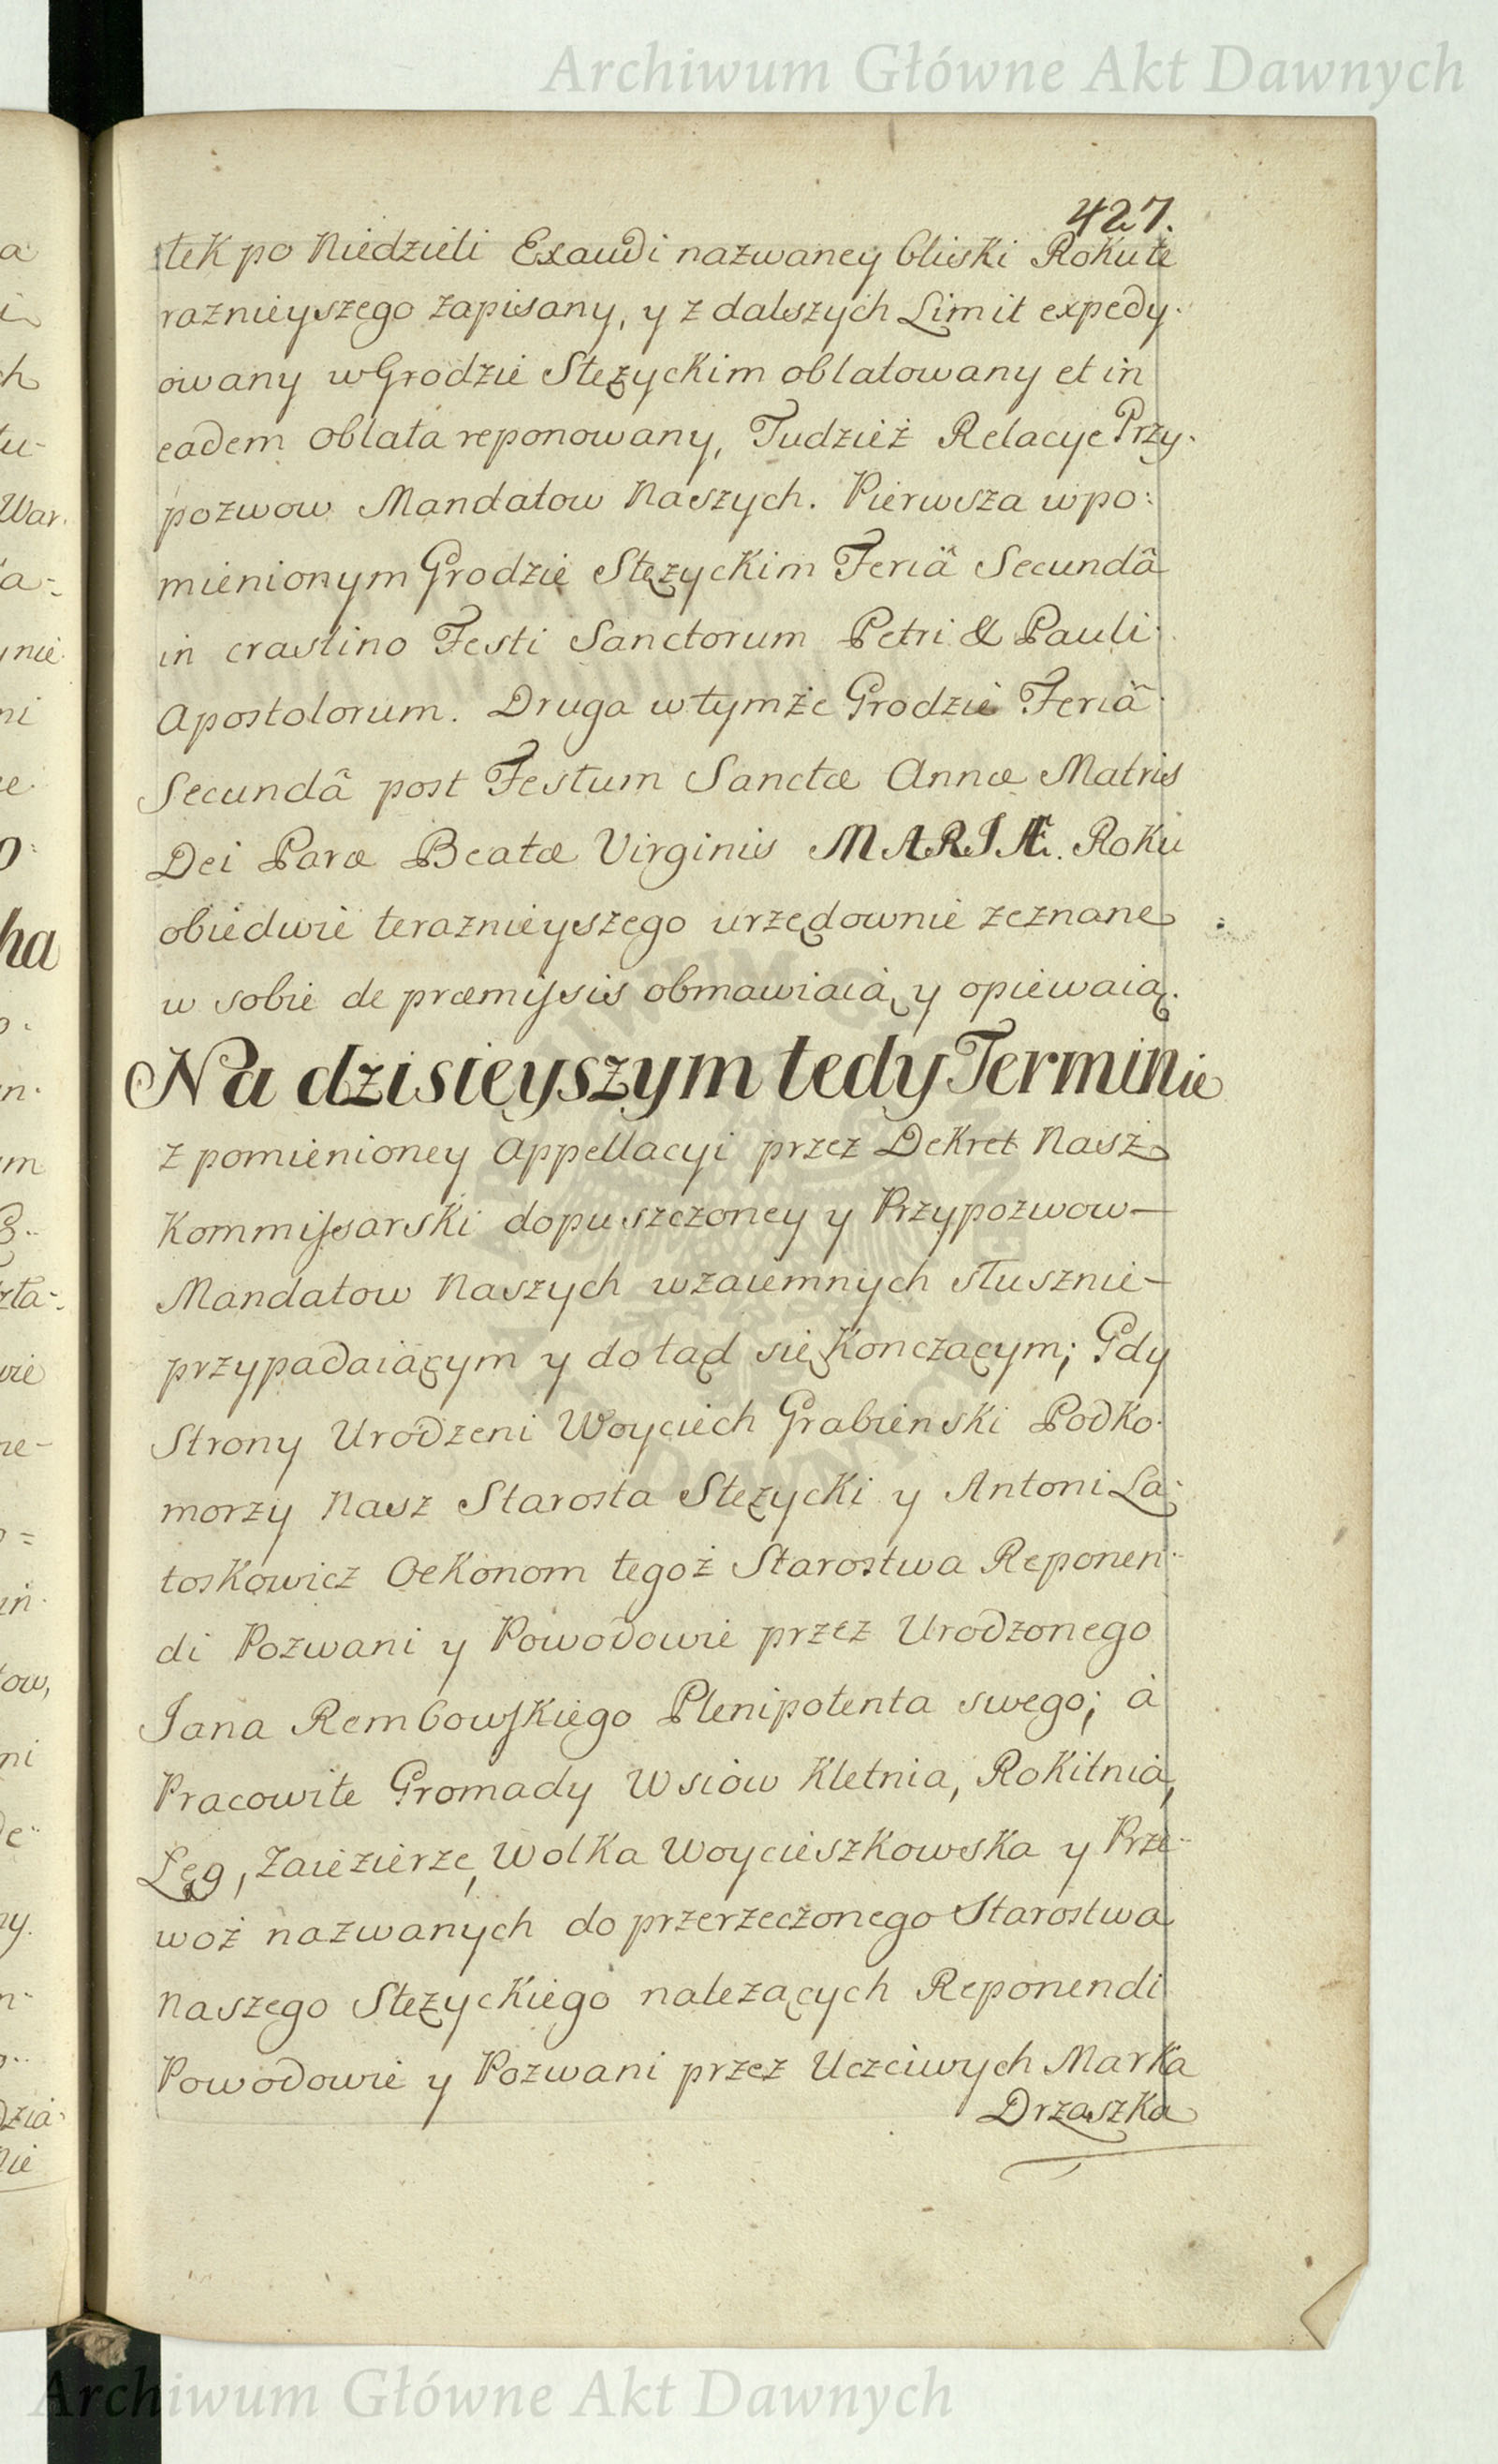 Archiwum Główne Akt Dawnych
427.
tek po Niedzieli Exaudi nazwaney bliski Roku te
raznieyszego zapisany, y z dalszych Limit expedy-
owany w Grodzie Stężyckim oblatowany et in
eadem oblata reponowany, Tudzież Relacye Przy-
pozwow Mandatow Naszych. Pierwsza w po:
mienionym Grodzie Stężyckim Feriâ Secundâ
in crastino Festi Sanctorum Petri & Pauli
Apostolorum. Druga w tymże Grodzie Feriâ
Secundâ post Festum Sanctæ Annæ Matris
Dei Paræ Beatæ Virginis MARIÆ. Roku
obiedwie teraznieyszego urzędownie zeznane
w sobie de præmissis obmawiaią y opiewaią.
Na dzisieyszym tedy Terminie
z pomienioney Appellacyi przez Dekret Nasz
Kommissarski dopuszczoney y Przypozwow—
Mandatow Naszych wzaiemnych słusznie—
przypadaiącym y dotąd się kończącym; Gdy
Strony Urodzeni Woyciech Grabienski Podko-
morzy Nasz Starosta Stężycki y Antoni La-
toskowicz Oekonom tegoż Starostwa Reponen-
di Pozwani y Powodowie przez Urodzonego
Jana Rembowskiego Plenipotenta swego; à
Pracowite Gromady Wsiow Kletnia, Rokitnia,
Lęg, Zaiezierze, Wolka Woycieszkowska y Prze-
woż nazwanych do przerzeczonego Starostwa
Naszego Stężyckiego należących Reponendi
Powodowie y Pozwani przez Uczciwych Marka
Drzaszka
Archiwum Główne Akt Dawnych